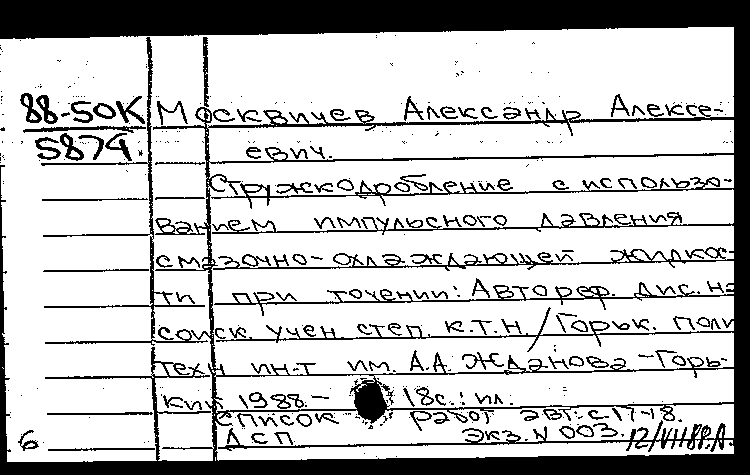 88-50К Москвичев Александр Алексе-
5874. евич.
Стружкодробление с использо-
ванием импульсного давления
смазочно-охлаждающей жидкос-
ти при точении: Автореф. дис. на
соиск. учен. степ. к.т.н. / Горьк. поли
техн ин-т им. А.А. Жданова - Горь-
кий 1988. - 18с.: ил.
Список работ авт: с. 17-18.
6 ДСП Экз. N 003. 12/VII88г.